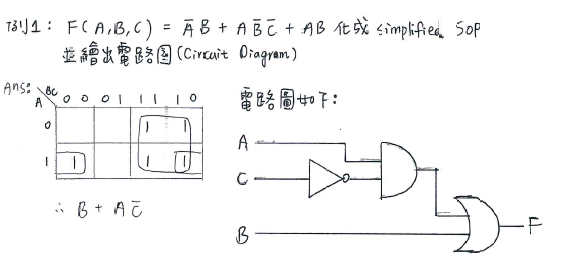 例1: F(A,B,C) = A̅B + AB̅C̅ + AB 化成 simplified SOP
並繪出電路圖(Circuit Diagram)
Ans:
BC
A
00 01 11 10
0 1 1
1 1 1 1
∴ B + AC̅
電路圖如下:
A
C
B
F